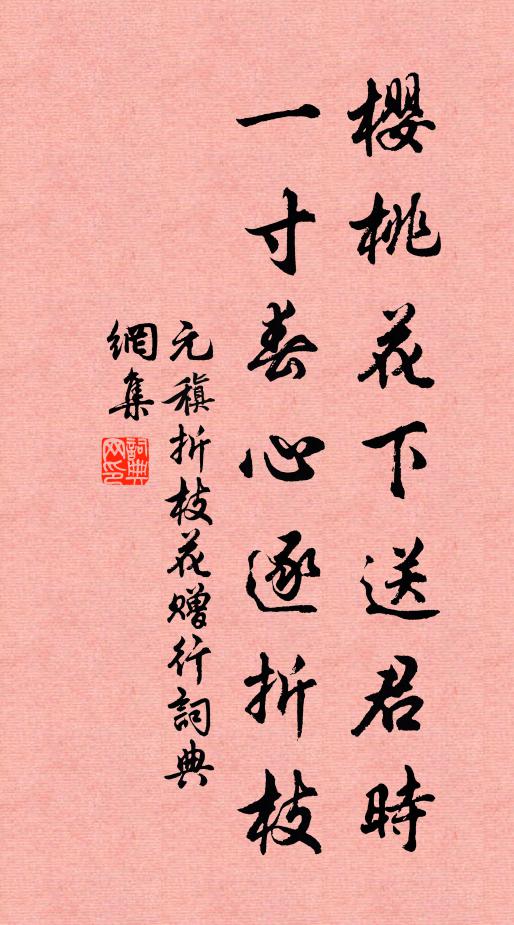 櫻桃花下送君時
一寸春心逐折枝
元稹折枝花贈行詞典
網集
詞典網印